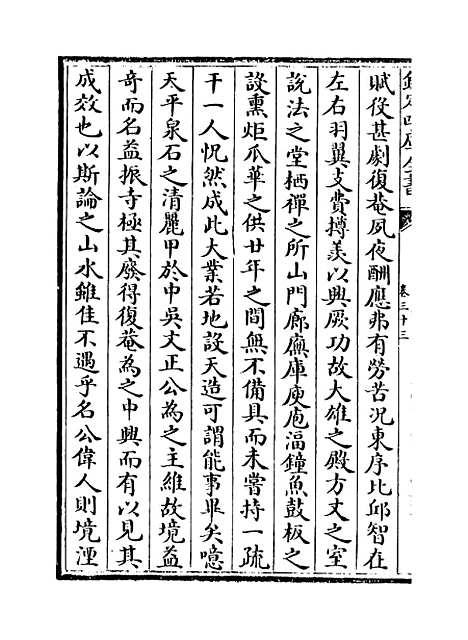 欽定四庫全書
卷三十三
賦役甚劇復菴夙夜酬應弗有勞苦況東序比邱智在
左右羽翼支費撙羡以興厥功故大雄之殿方丈之室
說法之堂栖禪之所山門廊廡庫庾庖湢鐘魚鼓板之
設熏炬瓜華之供廿年之間無不備具而未嘗持一疏
干一人怳然成此大業若地設天造可謂能事畢矣噫
天平泉石之清麗甲於中吳文正公為之主維故境益
奇而名益振寺極其廢得復菴為之中興而有以見其
成效也以斯論之山水雖佳不遇乎名公偉人則境湮